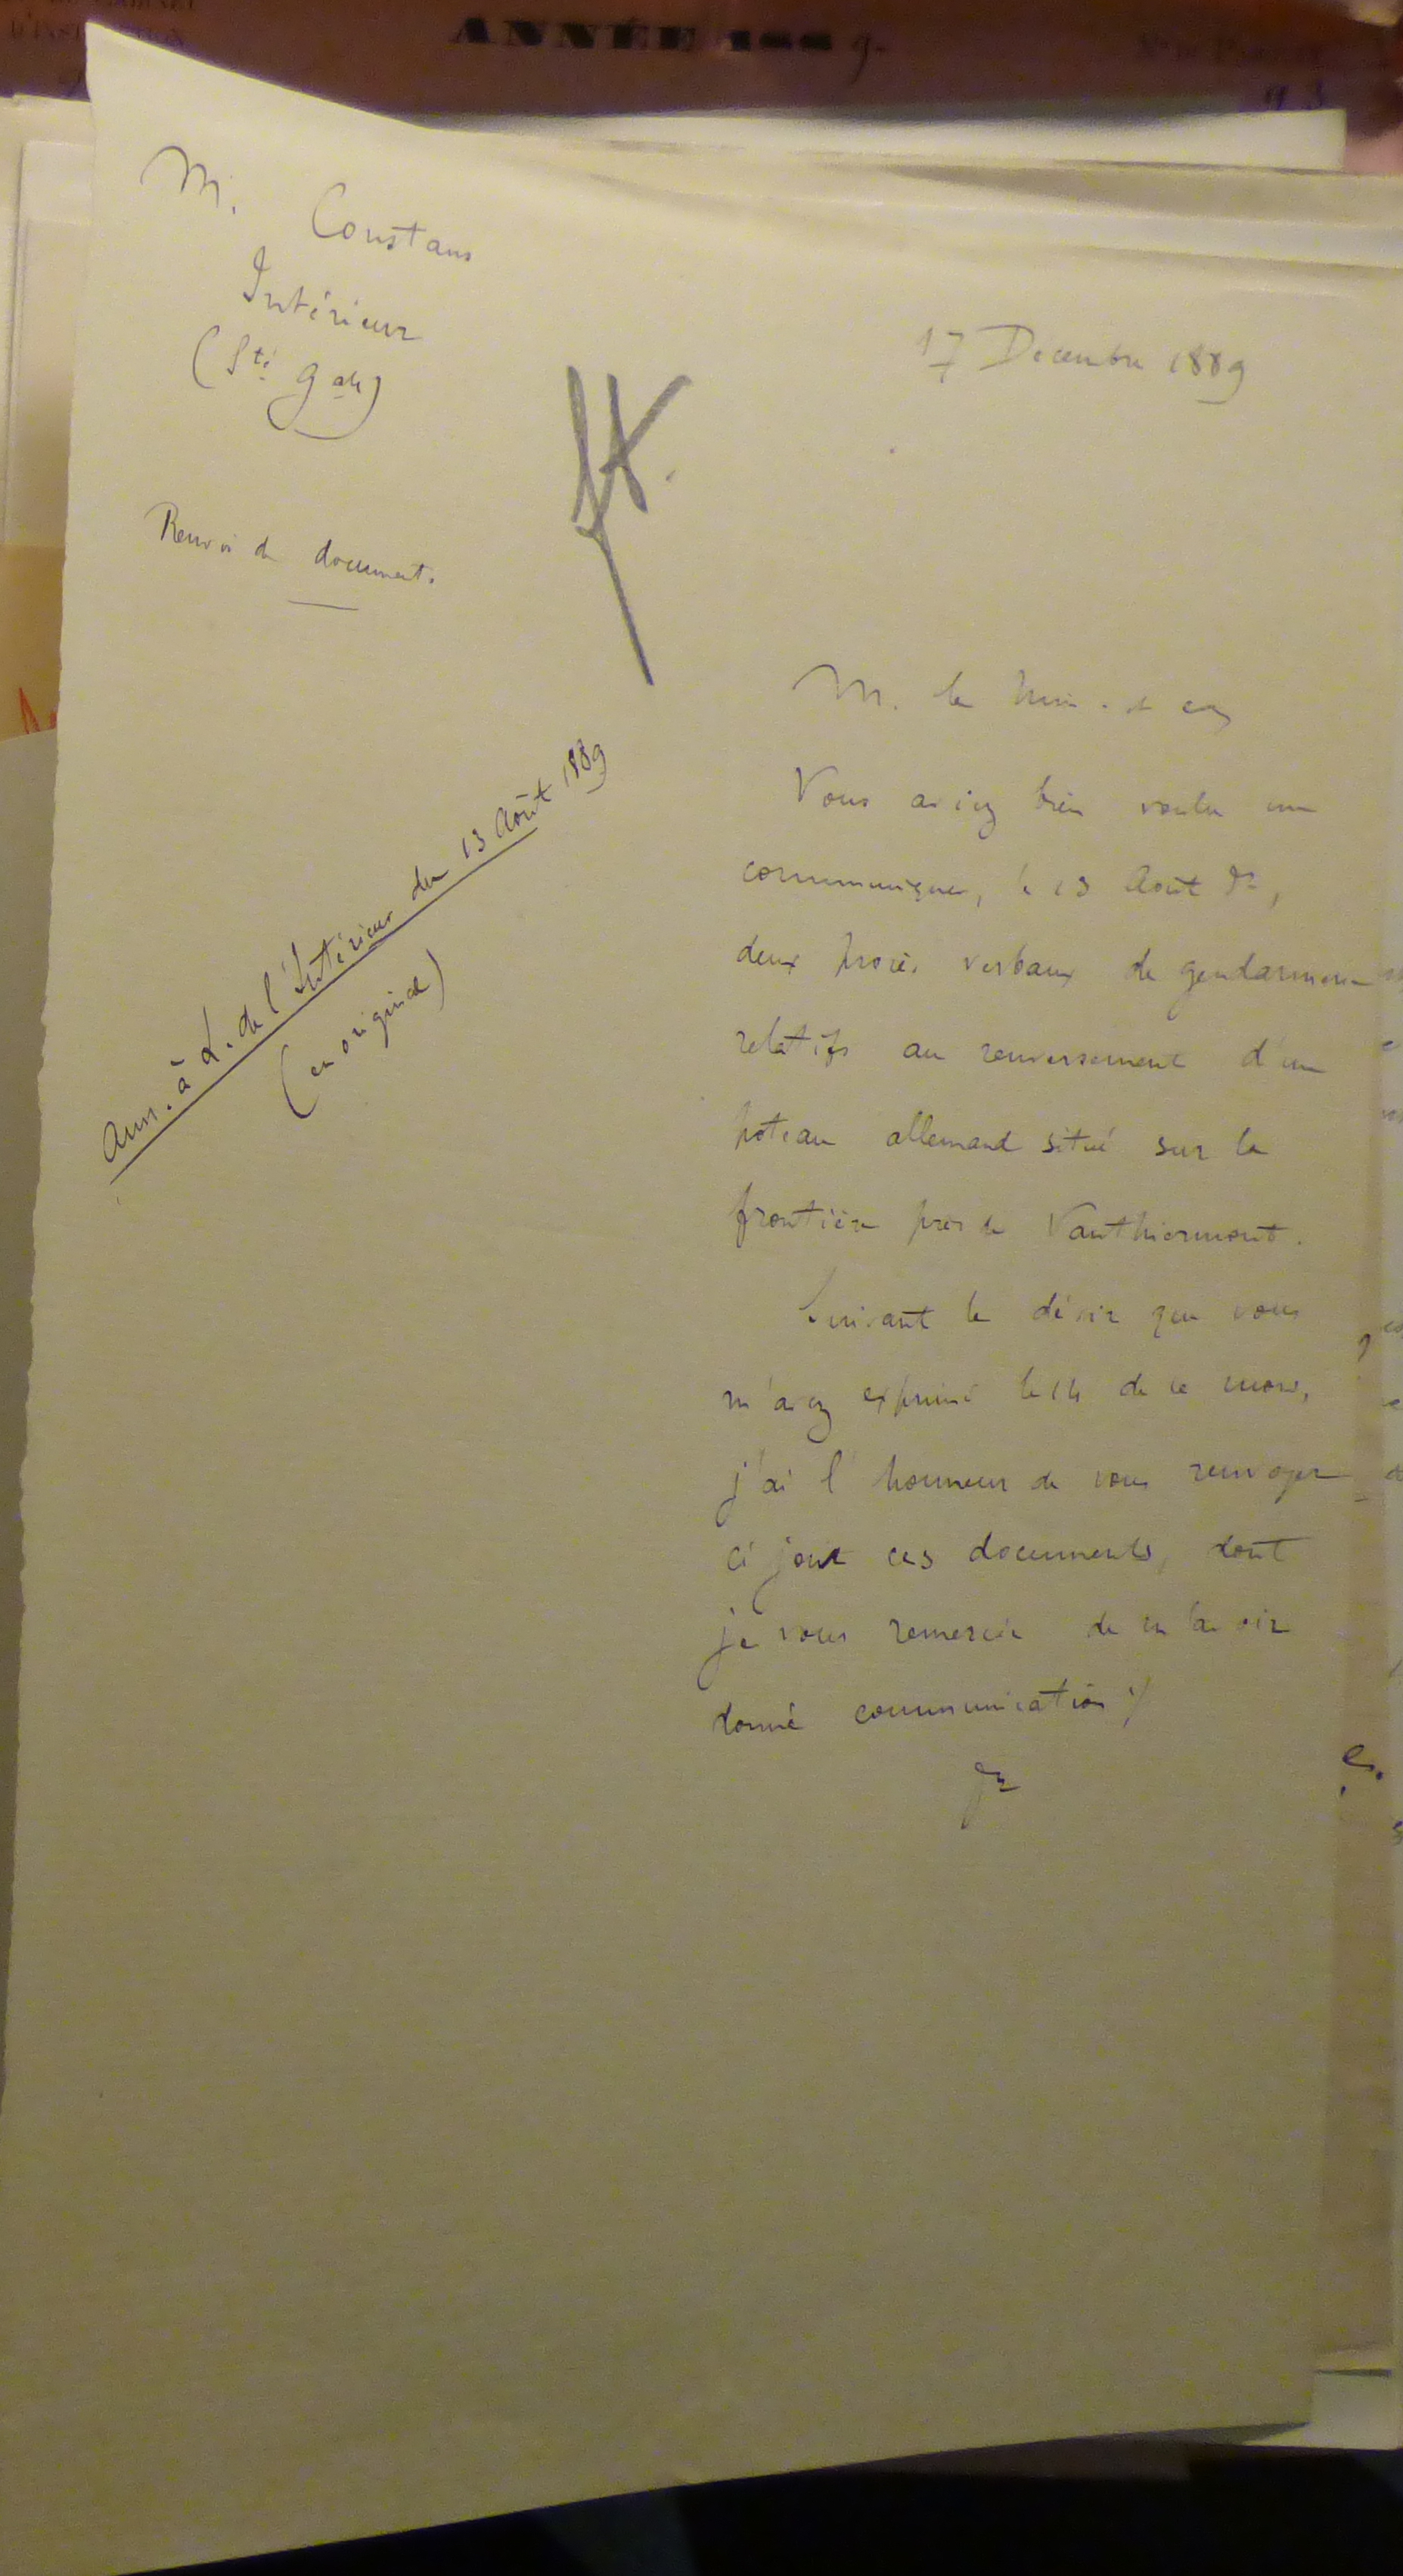 ANNÉE 1889.
93
M. Constans
Intérieur
(Sté Gale)
17 Décembre 1889
Renvoi de documents.
Ann. à L. de l'Intérieur du 13 Août 1889
(en original)
M. le Min. et
Vous aviez bien voulu me
communiquer, le 13 Août Dr,
deux procès verbaux de gendarmerie
relatifs au renversement d'un
poteau allemand situé sur la
frontière près de Vauthiermont.
Suivant le désir que vous
m'avez exprimé le 14 de ce mois,
j'ai l'honneur de vous renvoyer
ci joint ces documents, dont
je vous remercie de m'avoir
donné communication /.